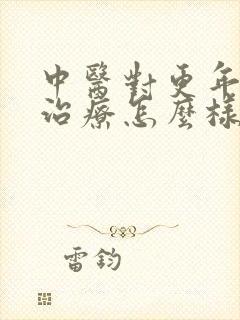 中醫對更年
治療怎麼樣
雷鈞